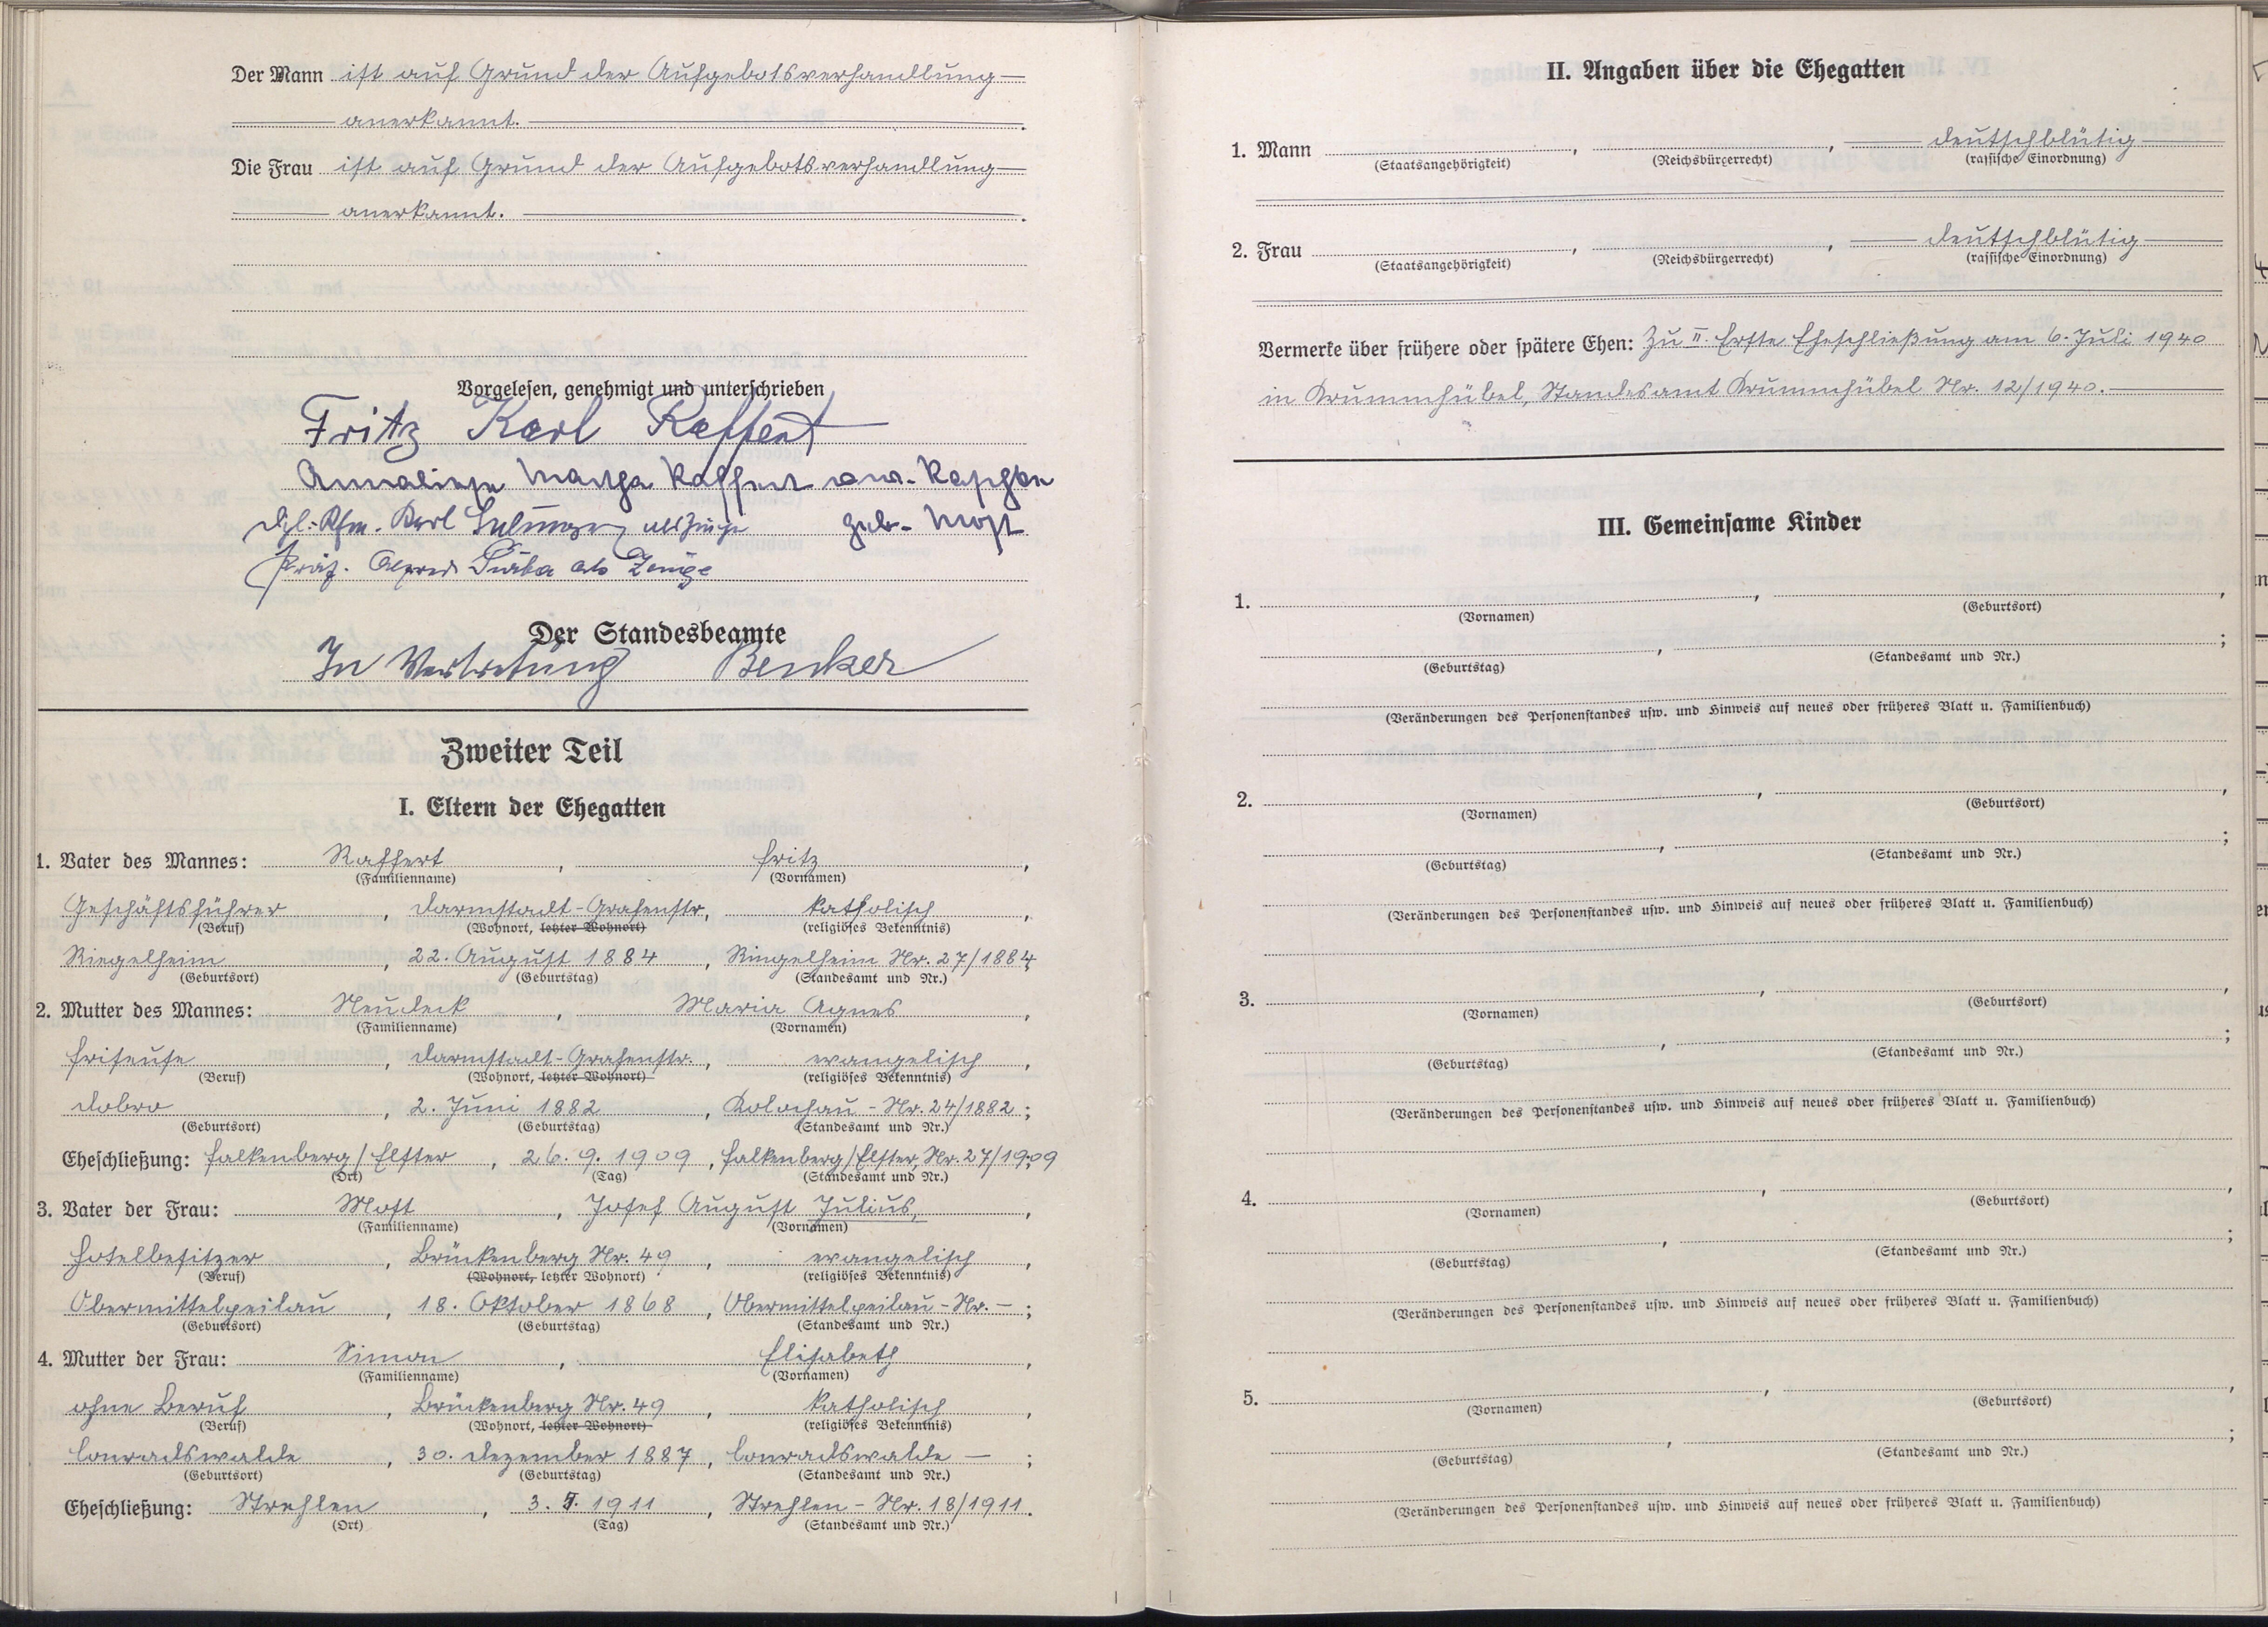 Der Mann ist auf Grund der Aufgebotsverhandlung —
— anerkannt. —
Die Frau ist auf Grund der Aufgebotsverhandlung —
— anerkannt. —
Vorgelesen, genehmigt und unterschrieben
Fritz Karl Raffert
Martha Raffert
geb. Most
Karl als Zeuge
Alfred als Zeuge
Der Standesbeamte
In Vertretung Benker
Zweiter Teil
I. Eltern der Ehegatten
1. Vater des Mannes: Raffert, Fritz,
(Familienname) (Vornamen)
Geschäftsführer, Darmstadt-Grafenstr., katholisch,
(Beruf) (Wohnort, letzter Wohnort) (religiöses Bekenntnis)
Riegelheim, 22. August 1884, Ringelheim Nr. 27/1884;
(Geburtsort) (Geburtstag) (Standesamt und Nr.)
2. Mutter des Mannes: Neudeck, Maria Agnes,
(Familienname) (Vornamen)
Friseuse, Darmstadt-Grafenstr., evangelisch,
(Beruf) (Wohnort, letzter Wohnort) (religiöses Bekenntnis)
Dobra, 2. Juni 1882, Kolochau - Nr. 24/1882;
(Geburtsort) (Geburtstag) (Standesamt und Nr.)
Eheschließung: Falkenberg/Elster, 26. 9. 1909, Falkenberg/Elster, Nr. 27/1909
(Ort) (Tag) (Standesamt und Nr.)
3. Vater der Frau: Most, Josef August Julius,
(Familienname) (Vornamen)
Hotelbesitzer, Brückenberg Nr. 49, evangelisch,
(Beruf) (Wohnort, letzter Wohnort) (religiöses Bekenntnis)
Obermittelpeilau, 18. Oktober 1868, Obermittelpeilau - Nr. —;
(Geburtsort) (Geburtstag) (Standesamt und Nr.)
4. Mutter der Frau: Simon, Elisabeth,
(Familienname) (Vornamen)
ohne Beruf, Brückenberg Nr. 49, katholisch,
(Beruf) (Wohnort, letzter Wohnort) (religiöses Bekenntnis)
Conradswalde, 30. Dezember 1887, Conradswalde —;
(Geburtsort) (Geburtstag) (Standesamt und Nr.)
Eheschließung: Strehlen, 3. 1911, Strehlen - Nr. 18/1911.
(Ort) (Tag) (Standesamt und Nr.)
II. Angaben über die Ehegatten
1. Mann , , — deutschblütig —
(Staatsangehörigkeit) (Reichsbürgerrecht) (rassische Einordnung)
2. Frau , , — deutschblütig —
(Staatsangehörigkeit) (Reichsbürgerrecht) (rassische Einordnung)
Vermerke über frühere oder spätere Ehen: Zu II. Erste Eheschließung am 6. Juli 1940
in Krummhübel, Standesamt Krummhübel Nr. 12/1940. —
III. Gemeinsame Kinder
1. , ,
(Vornamen) (Geburtsort)
, ;
(Geburtstag) (Standesamt und Nr.)
(Veränderungen des Personenstandes usw. und Hinweis auf neues oder früheres Blatt u. Familienbuch)
2. , ,
(Vornamen) (Geburtsort)
, ;
(Geburtstag) (Standesamt und Nr.)
(Veränderungen des Personenstandes usw. und Hinweis auf neues oder früheres Blatt u. Familienbuch)
3. , ,
(Vornamen) (Geburtsort)
, ;
(Geburtstag) (Standesamt und Nr.)
(Veränderungen des Personenstandes usw. und Hinweis auf neues oder früheres Blatt u. Familienbuch)
4. , ,
(Vornamen) (Geburtsort)
, ;
(Geburtstag) (Standesamt und Nr.)
(Veränderungen des Personenstandes usw. und Hinweis auf neues oder früheres Blatt u. Familienbuch)
5. , ,
(Vornamen) (Geburtsort)
, ;
(Geburtstag) (Standesamt und Nr.)
(Veränderungen des Personenstandes usw. und Hinweis auf neues oder früheres Blatt u. Familienbuch)